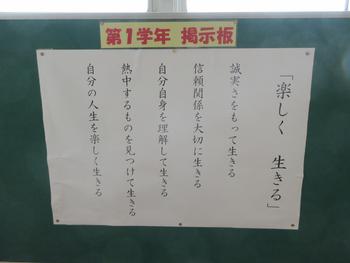 第1学年 掲示板
「楽しく 生きる」
誠実さをもって生きる
信頼関係を大切に生きる
自分自身を理解して生きる
熱中するものを見つけて生きる
自分の人生を楽しく生きる